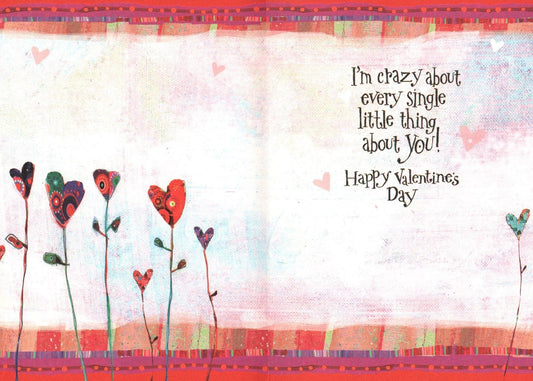 I'm crazy about
every single
little thing
about you!
Happy Valentine's
Day